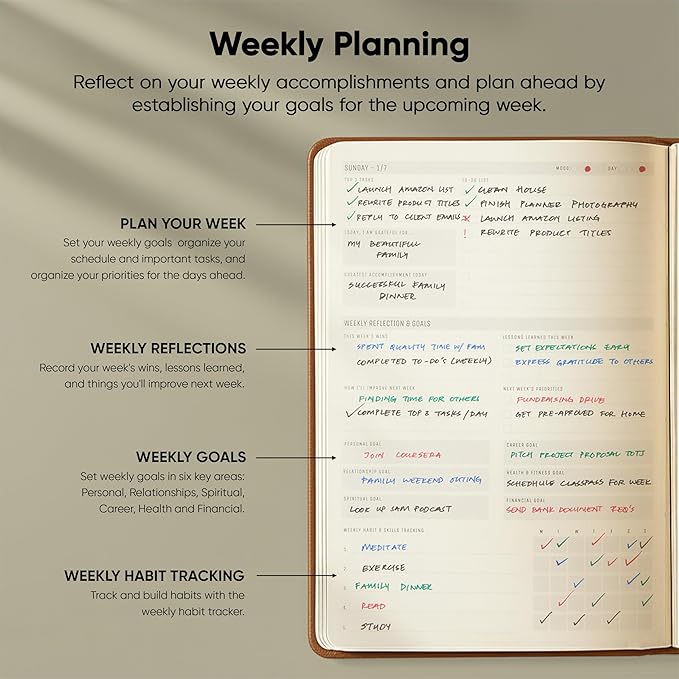 Weekly Planning
Reflect on your weekly accomplishments and plan ahead by
establishing your goals for the upcoming week.
PLAN YOUR WEEK
Set your weekly goals organize your
schedule and important tasks, and
organize your priorities for the days ahead.
WEEKLY REFLECTIONS
Record your week's wins, lessons learned,
and things you'll improve next week.
WEEKLY GOALS
Set weekly goals in six key areas:
Personal, Relationships, Spiritual,
Career, Health and Financial.
WEEKLY HABIT TRACKING
Track and build habits with the
weekly habit tracker.
SUNDAY - 1/7
MOOD: DAY:
TOP 3 TASKS
LAUNCH AMAZON LIST
REWRITE PRODUCT TITLES
REPLY TO CLIENT EMAILS
TO-DO LIST
CLEAN HOUSE
FINISH PLANNER PHOTOGRAPHY
LAUNCH AMAZON LISTING
REWRITE PRODUCT TITLES
TODAY, I AM GRATEFUL FOR...
MY BEAUTIFUL
FAMILY
GREATEST ACCOMPLISHMENT TODAY
SUCCESSFUL FAMILY
DINNER
WEEKLY REFLECTION & GOALS
THIS WEEK'S WINS
SPENT QUALITY TIME W/ FAM
COMPLETED TO-DO'S (WEEKLY)
LESSONS LEARNED THIS WEEK
SET EXPECTATIONS EARLY
EXPRESS GRATITUDE TO OTHERS
HOW I'LL IMPROVE NEXT WEEK
FINDING TIME FOR OTHERS
COMPLETE TOP 3 TASKS/DAY
NEXT WEEK'S PRIORITIES
FUNDRAISING DRIVE
GET PRE-APROVED FOR HOME
PERSONAL GOAL
JOIN COURSERA
CAREER GOAL
PITCH PROJECT PROPOSAL
RELATIONSHIP GOAL
FAMILY WEEKEND OUTING
HEALTH & FITNESS GOAL
SCHEDHULE CLASSPASS FOR WEEK
SPIRITUAL GOAL
LOOK UP SAM PODCAST
FINANCIAL GOAL
SEND BANK DOCUMENT REQ'S
WEEKLY HABIT & SKILLS TRACKING
M T W T F S S
1. MEDITATE
2. EXERCISE
3. FAMILY DINNER
4. READ
5. STUDY